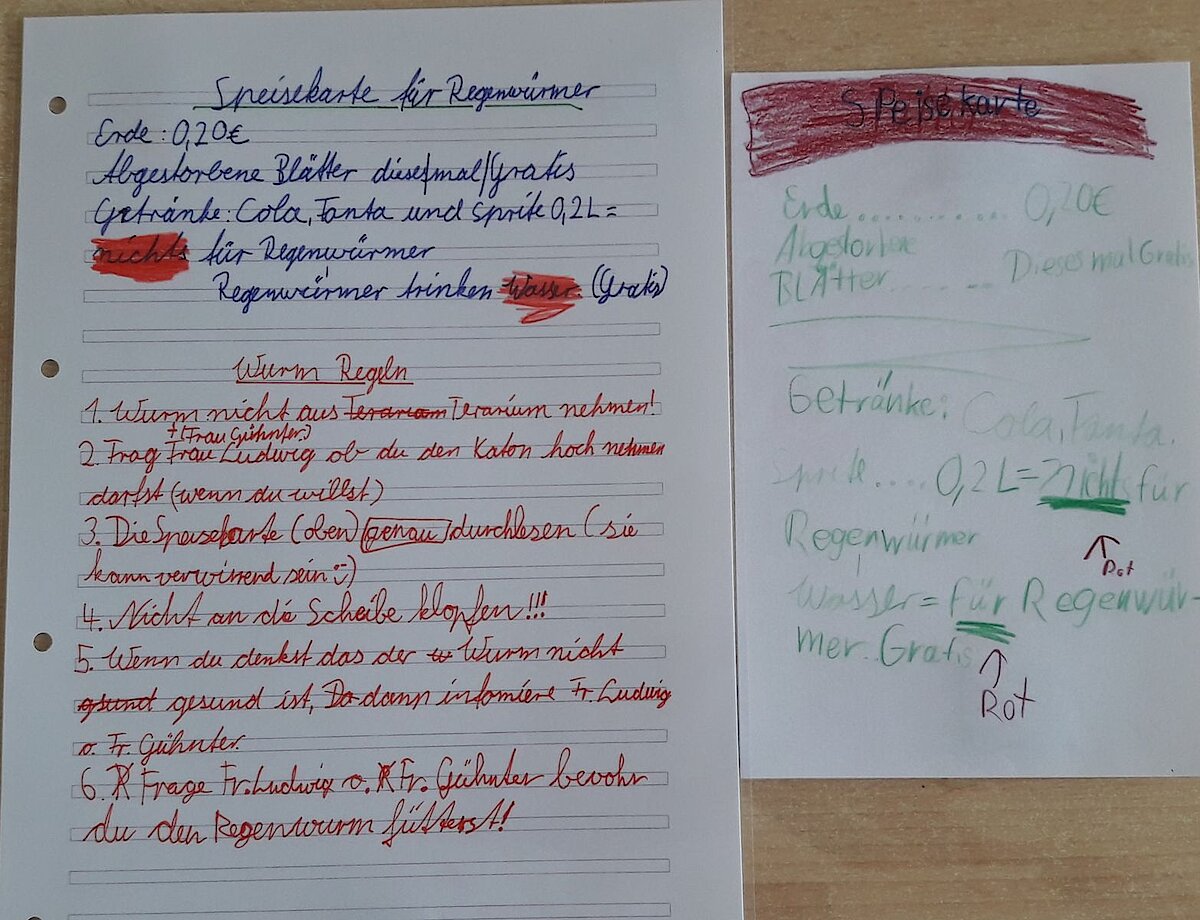 Speisekarte für Regenwürmer
Erde: 0,20€
Abgestorbene Blätter dieses|mal|Gratis
Getränke: Cola, Fanta und Sprite 0,2L=
nichts für Regenwürmer
Regenwürmer trinken Wasser. (Gratis)
Wurm Regeln
1. Wurm nicht aus Terariam Terarium nehmen!
+(Frau Gühnter)
2. Frag Frau Ludwig ob du den Katon hoch nehmen
darfst (wenn du willst)
3. Die Speisekarte (oben) genau durchlesen (sie
kann verwirrend sein :-)
4. Nicht an die Scheibe klopfen!!!
5. Wenn du denkst das der w Wurm nicht
gsund gesund ist, Da dann infomiere Fr. Ludwig
o. Fr. Gühnter.
6. R Frage Fr. Ludwig o. R Fr. Gühnter bevohr
du den Regenwurm fütterst!
SPeisekarte
Erde ............. 0,20€
Abgestorbene
BLÄtter ... .. Dieses mal Gratis
Getränke: Cola, Fanta.
Sprite.... 0,2L= nichts für
Regenwürmer
Rot
Wasser= für Regenwür-
mer. Gratis
Rot